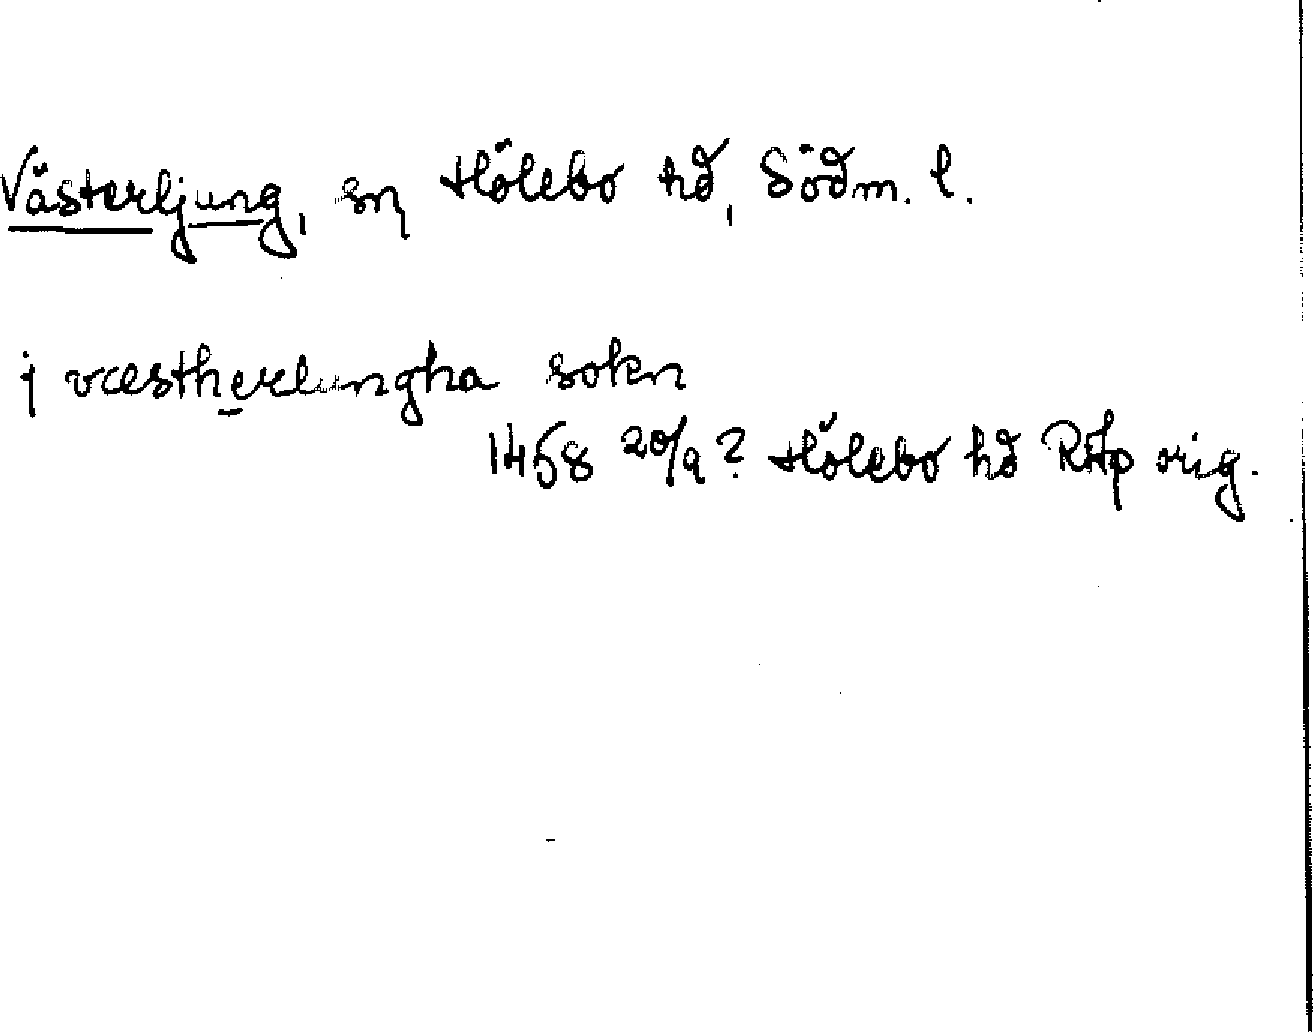 Västerljung, sn, Hölebo hd, Södm. l.
j væstherlungha sokn
1458 20/9? Hölebo hd RAp orig.